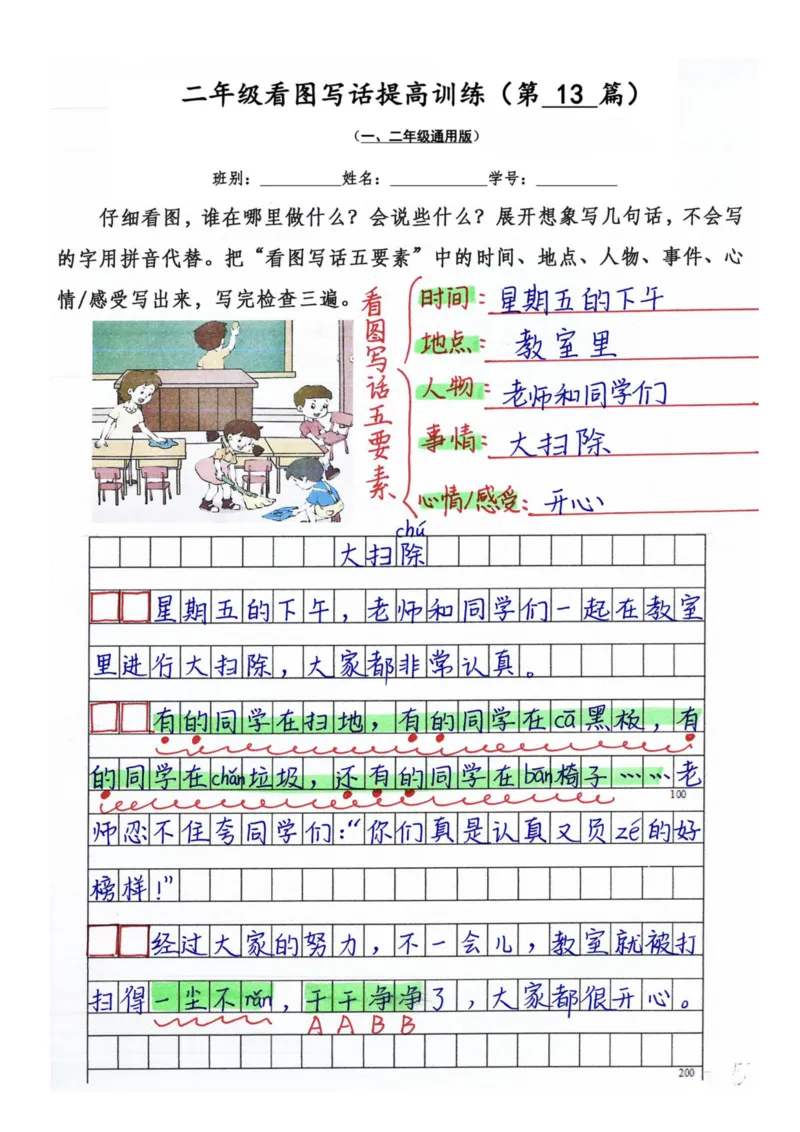 二年级看图写话提高训练（第 13 篇）
（一、二年级通用版）
班别：__________姓名：____________学号：__________
仔细看图，谁在哪里做什么？会说些什么？展开想象写几句话，不会写
的字用拼音代替。把“看图写话五要素”中的时间、地点、人物、事件、心
情/感受写出来，写完检查三遍。
看图写话五要素
时间：星期五的下午
地点：教室里
人物：老师和同学们
事情：大扫除
心情/感受：开心
chú
大扫除
星期五的下午，老师和同学们一起在教室
里进行大扫除，大家都非常认真。
有的同学在扫地，有的同学在cā黑板，有
的同学在chǎn垃圾，还有的同学在bān椅子……老
100
师忍不住夸同学们：“你们真是认真又负zé的好
榜样！”
经过大家的努力，不一会儿，教室就被打
扫得一尘不rǎn，干干净净了，大家都很开心。
A A B B
200